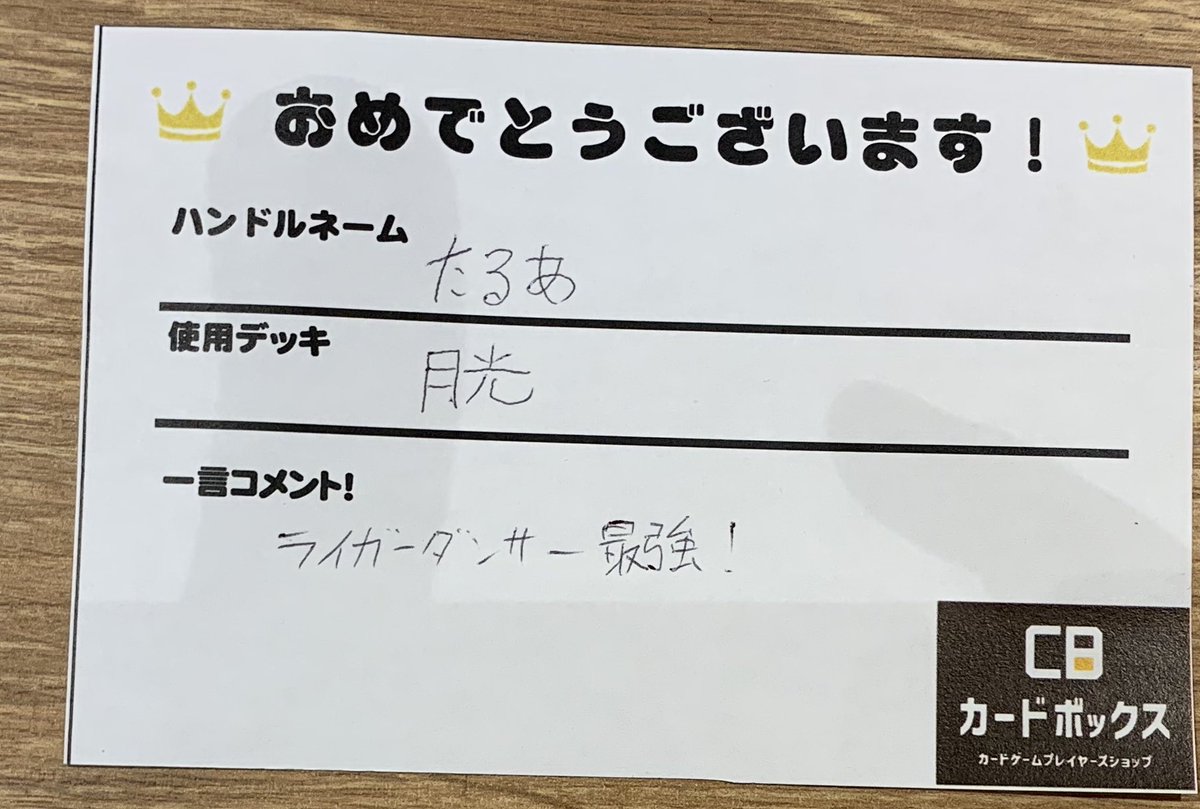 おめでとうございます！
ハンドルネーム
たるあ
使用デッキ
月光
一言コメント!
ライガーダンサー最強！
CB
カードボックス
カードゲームプレイヤーズショップ